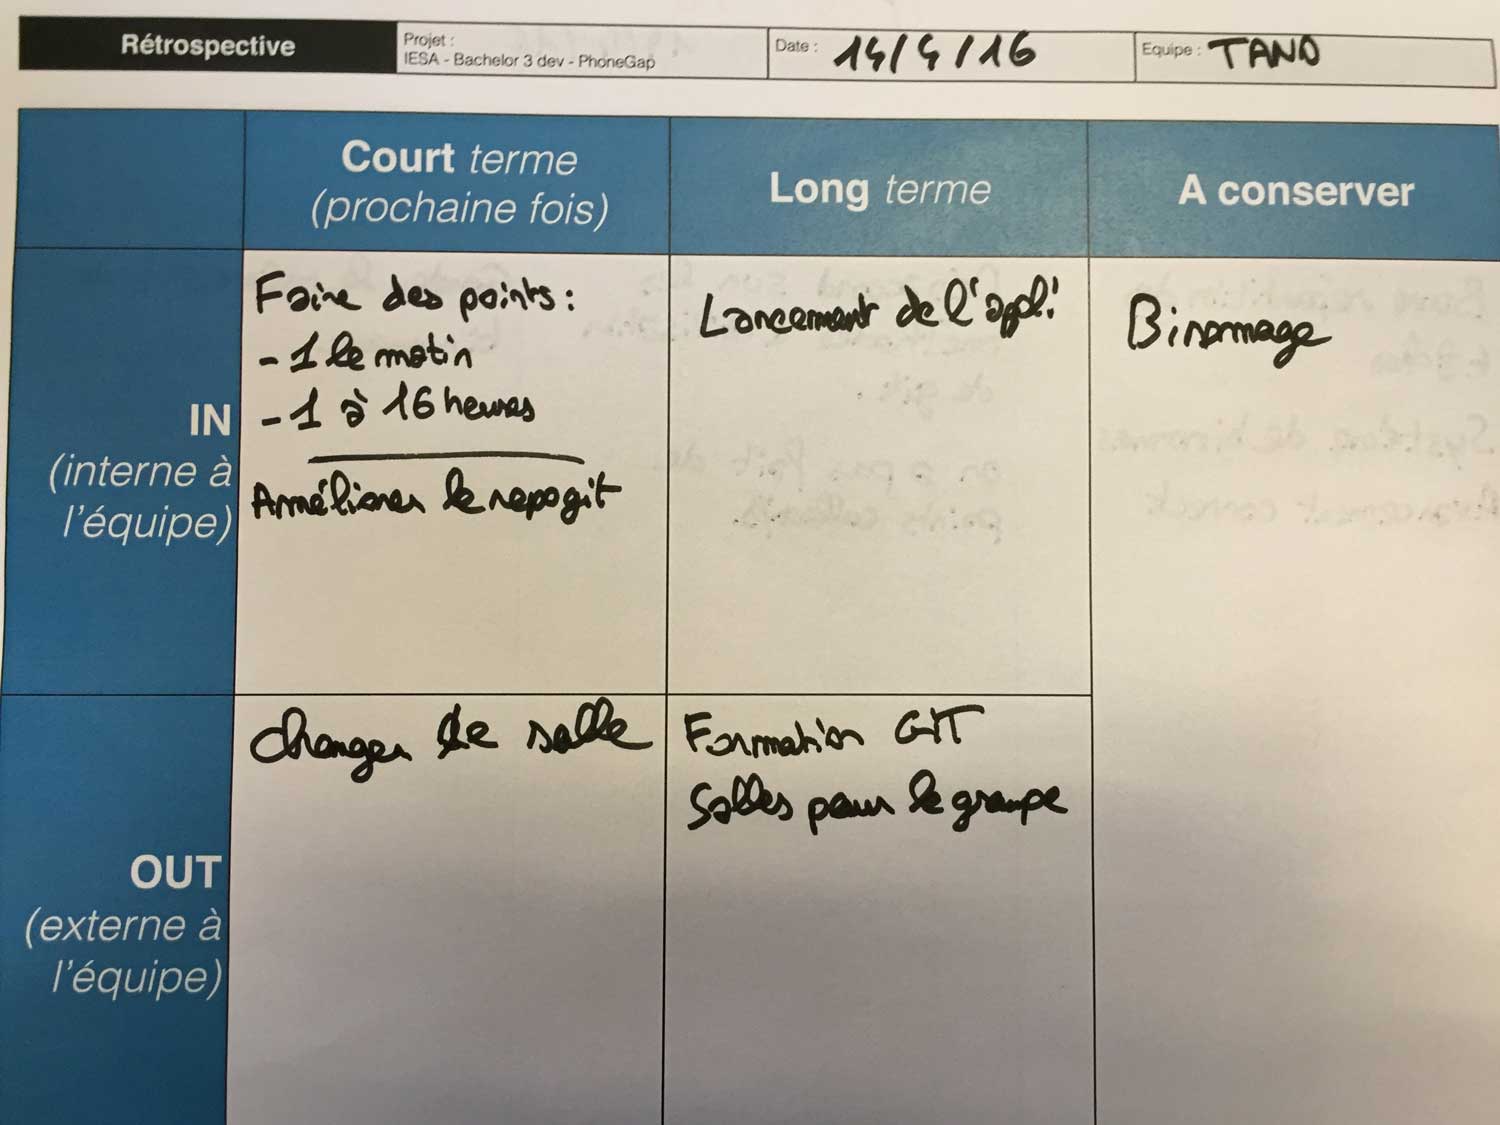 Rétrospective
Projet :
IESA - Bachelor 3 dev - PhoneGap
Date : 14/4/16
Equipe : TANO
Court terme
(prochaine fois)
Long terme
A conserver
IN
(interne à
l'équipe)
Faire des points :
- 1 le matin
- 1 à 16 heures
Améliorer le repo git
Lancement de l'appli
Binomage
OUT
(externe à
l'équipe)
Changer de salle
Formation GIT
Salles pour le groupe